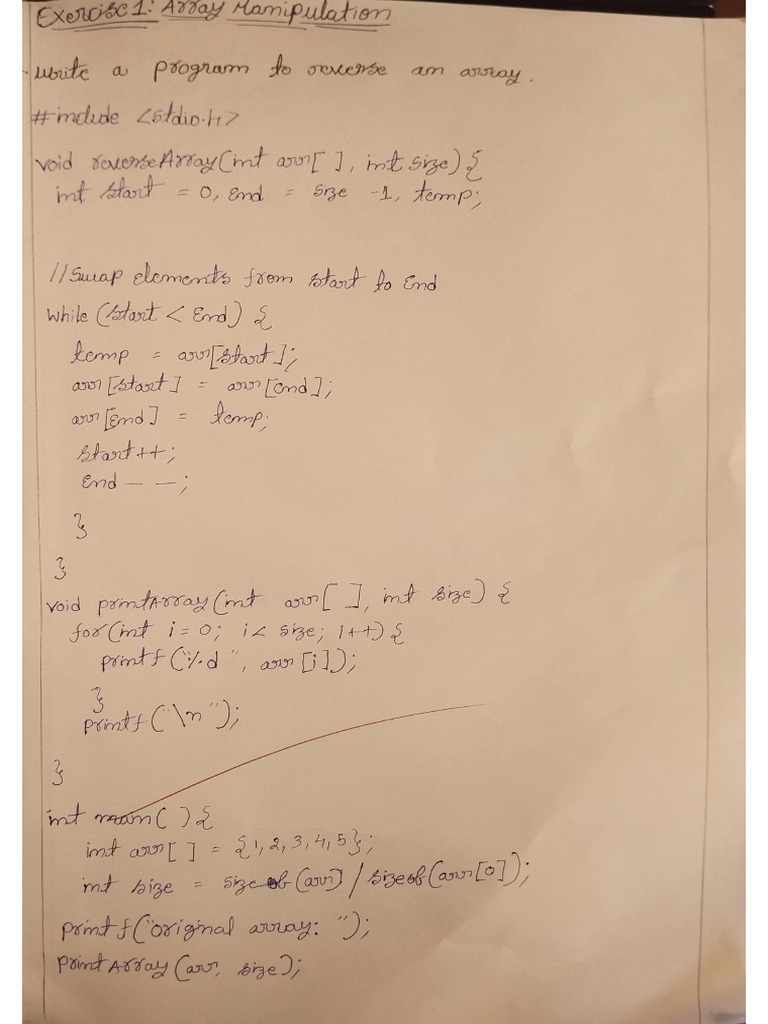 Exercise 1: Array Manipulation
write a program to reverse an array.
#include <stdio.h>
void reverseArray(int arr[ ], int size) {
int start = 0, End = size -1, temp;
//Swap elements from start to End
while (start < End) {
temp = arr[start];
arr[start] = arr[End];
arr[End] = temp;
start++;
End--;
}
}
void printArray(int arr[ ], int size) {
for(int i = 0; i < size; i++) {
printf("%d ", arr[i]);
}
printf("\n");
}
int main( ) {
int arr[ ] = {1, 2, 3, 4, 5};
int size = sizeof(arr) / sizeof(arr[0]);
printf("original array: ");
printArray(arr, size);